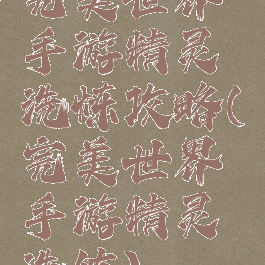 完美世界
手游精灵
洗炼攻略(
完美世界
手游精灵
洗炼)